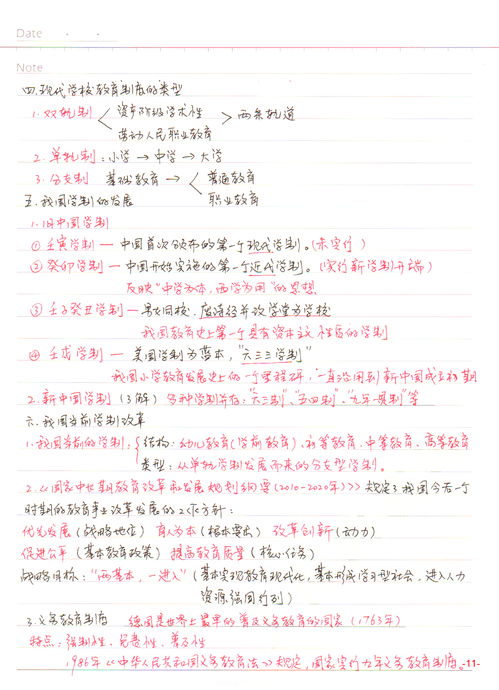 Date
Note
四.现代学校教育制度的类型
1.双轨制 资产阶级学术性 > 两条轨道
劳动人民职业教育
2.单轨制:小学→中学→大学
3.分支制 基础教育→ 普通教育
职业教育
五.我国学制的发展
1.旧中国学制
①壬寅学制—中国首次颁布的第一个现代学制。(未实行)
②癸卯学制—中国开始实施的第一个近代学制。(实行新学制开端)
反映"中学为体,西学为用"的思想
③壬子癸丑学制—男女同校,废读经并改学堂为学校
我国教育史上第一个具有资本主义性质的学制
④壬戌学制—美国学制为蓝本,"六三三学制"
我国学制发展史上的一个里程碑,一直沿用到新中国成立初期
2.新中国学制 (了解) 多种学制并存:"六三制"、"五四制"、"九年一贯制"等
六.我国当前学制改革
1.我国当前的学制:{结构:幼儿教育(学前教育)、初等教育、中等教育、高等教育
类型:从单轨学制发展而来的分支型学制。
2.《国家中长期教育改革和发展规划纲要(2010-2020年)》规定了我国今后一个
时期的教育事业改革发展的工作方针:
优先发展(战略地位) 育人为本(根本要求) 改革创新(动力)
促进公平(基本教育政策) 提高教育质量(核心任务)
战略目标:"两基本,一进入"(基本实现教育现代化,基本形成学习型社会,进入人力
资源强国行列)
3.义务教育制度 德国是世界上最早的普及义务教育的国家(1763年)
特点:强制性、免费性、普及性
1986年《中华人民共和国义务教育法》规定,国家实行九年义务教育制度。
-11-